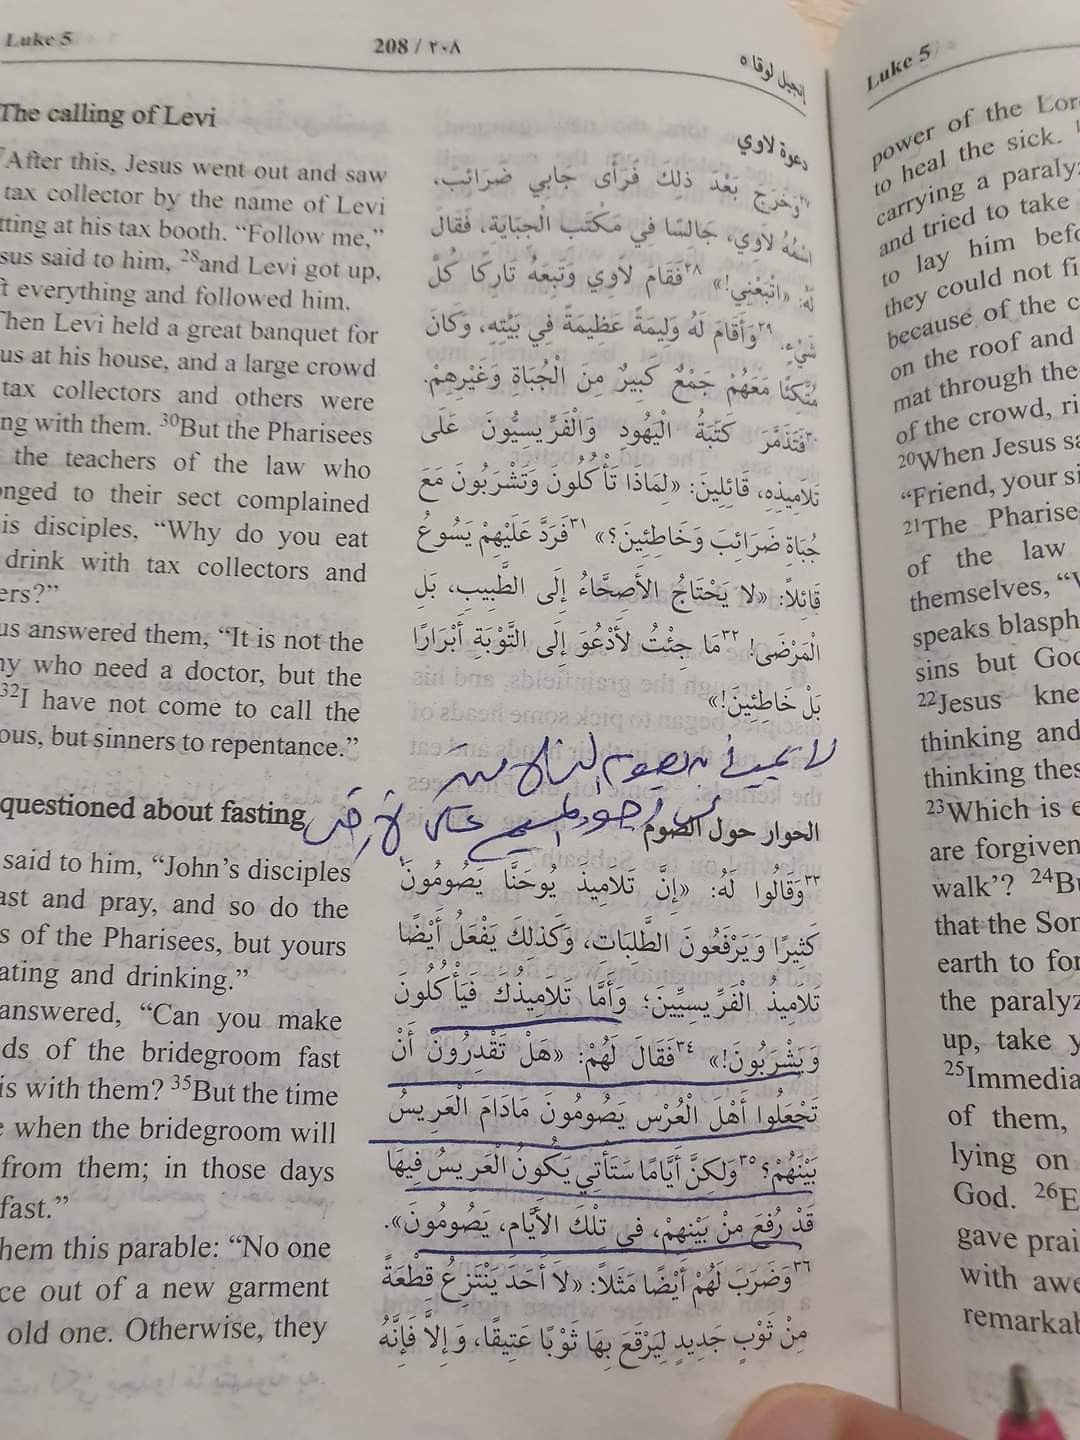 Luke 5
208 / ٢٠٨
إنجيل لوقا ٥
The calling of Levi
After this, Jesus went out and saw
tax collector by the name of Levi
tting at his tax booth. “Follow me,”
sus said to him, ²⁸and Levi got up,
ft everything and followed him.
Then Levi held a great banquet for
us at his house, and a large crowd
tax collectors and others were
ng with them. ³⁰But the Pharisees
the teachers of the law who
onged to their sect complained
is disciples, “Why do you eat
drink with tax collectors and
ers?”
us answered them, “It is not the
hy who need a doctor, but the
³²I have not come to call the
ous, but sinners to repentance.”
questioned about fasting
said to him, “John’s disciples
ast and pray, and so do the
s of the Pharisees, but yours
ating and drinking.”
answered, “Can you make
ds of the bridegroom fast
is with them? ³⁵But the time
e when the bridegroom will
from them; in those days
fast.”
hem this parable: “No one
ce out of a new garment
old one. Otherwise, they
دعوة لاوي
²⁷وَخَرَجَ بَعْدَ ذلِكَ فَرَأَى جَابِي ضَرَائِبَ،
اسْمُهُ لاَوِي، جَالِسًا فِي مَكْتَبِ الْجِبَايَةِ، فَقَالَ
لَهُ: «اتْبَعْنِي!» ٢٨فَقَامَ لاَوِي وَتَبِعَهُ تَارِكًا كُلَّ
شَيْءٍ. ٢٩وَأَقَامَ لَهُ وَلِيمَةً عَظِيمَةً فِي بَيْتِهِ، وَكَانَ
مُتَّكِئًا مَعَهُمْ جَمْعٌ كَبِيرٌ مِنَ الْجُبَاةِ وَغَيْرِهِمْ.
٣٠فَتَذَمَّرَ كَتَبَةُ الْيَهُودِ وَالْفَرِّيسِيُّونَ عَلَى
تَلاَمِيذِهِ، قَائِلِينَ: «لِمَاذَا تَأْكُلُونَ وَتَشْرَبُونَ مَعَ
جُبَاةِ ضَرَائِبَ وَخَاطِئِينَ؟» ٣١فَرَدَّ عَلَيْهِمْ يَسُوعُ
قَائِلاً: «لا يَحْتَاجُ الأَصِحَّاءُ إِلَى الطَّبِيبِ، بَلِ
الْمَرْضَى! ٣٢مَا جِئْتُ لأَدْعُوَ إِلَى التَّوْبَةِ أَبْرَارًا
بَلْ خَاطِئِينَ!»
لا
المسيح على الأرض
الحوار حول الصوم
٣٣وَقَالُوا لَهُ: «إِنَّ تَلاَمِيذَ يُوحَنَّا يَصُومُونَ
كَثِيرًا وَيَرْفَعُونَ الطَّلِبَاتِ، وَكَذلِكَ يَفْعَلُ أَيْضًا
تَلاَمِيذُ الْفَرِّيسِيِّينَ؛ وَأَمَّا تَلاَمِيذُكَ فَيَأْكُلُونَ
وَيَشْرَبُونَ!» ٣٤فَقَالَ لَهُمْ: «هَلْ تَقْدِرُونَ أَنْ
تَجْعَلُوا أَهْلَ الْعُرْسِ يَصُومُونَ مَادَامَ الْعَرِيسُ
بَيْنَهُمْ؟ ٣٥وَلكِنَّ أَيَّامًا سَتَأْتِي يَكُونُ الْعَرِيسُ فِيهَا
قَدْ رُفِعَ مِنْ بَيْنِهِمْ، فِي تِلْكَ الأَيَّامِ، يَصُومُونَ».
٣٦وَضَرَبَ لَهُمْ أَيْضًا مَثَلاً: «لاَ أَحَدَ يَنْتَزِعُ قِطْعَةً
مِنْ ثَوْبٍ جَدِيدٍ لِيَرْقَعَ بِهَا ثَوْبًا عَتِيقًا، وَإِلاَّ فَإِنَّهُ
Luke 5
power of the Lor
to heal the sick.
carrying a paralyz
and tried to take
to lay him befo
they could not fi
because of the c
on the roof and
mat through the
of the crowd, ri
²⁰When Jesus sa
“Friend, your si
²¹The Pharise
of the law
themselves, “W
speaks blasph
sins but God
²²Jesus kne
thinking and
thinking thes
²³Which is e
are forgiven
walk’? ²⁴Bu
that the Son
earth to for
the paralyz
up, take y
²⁵Immedia
of them,
lying on
God. ²⁶E
gave prai
with awe
remarkab